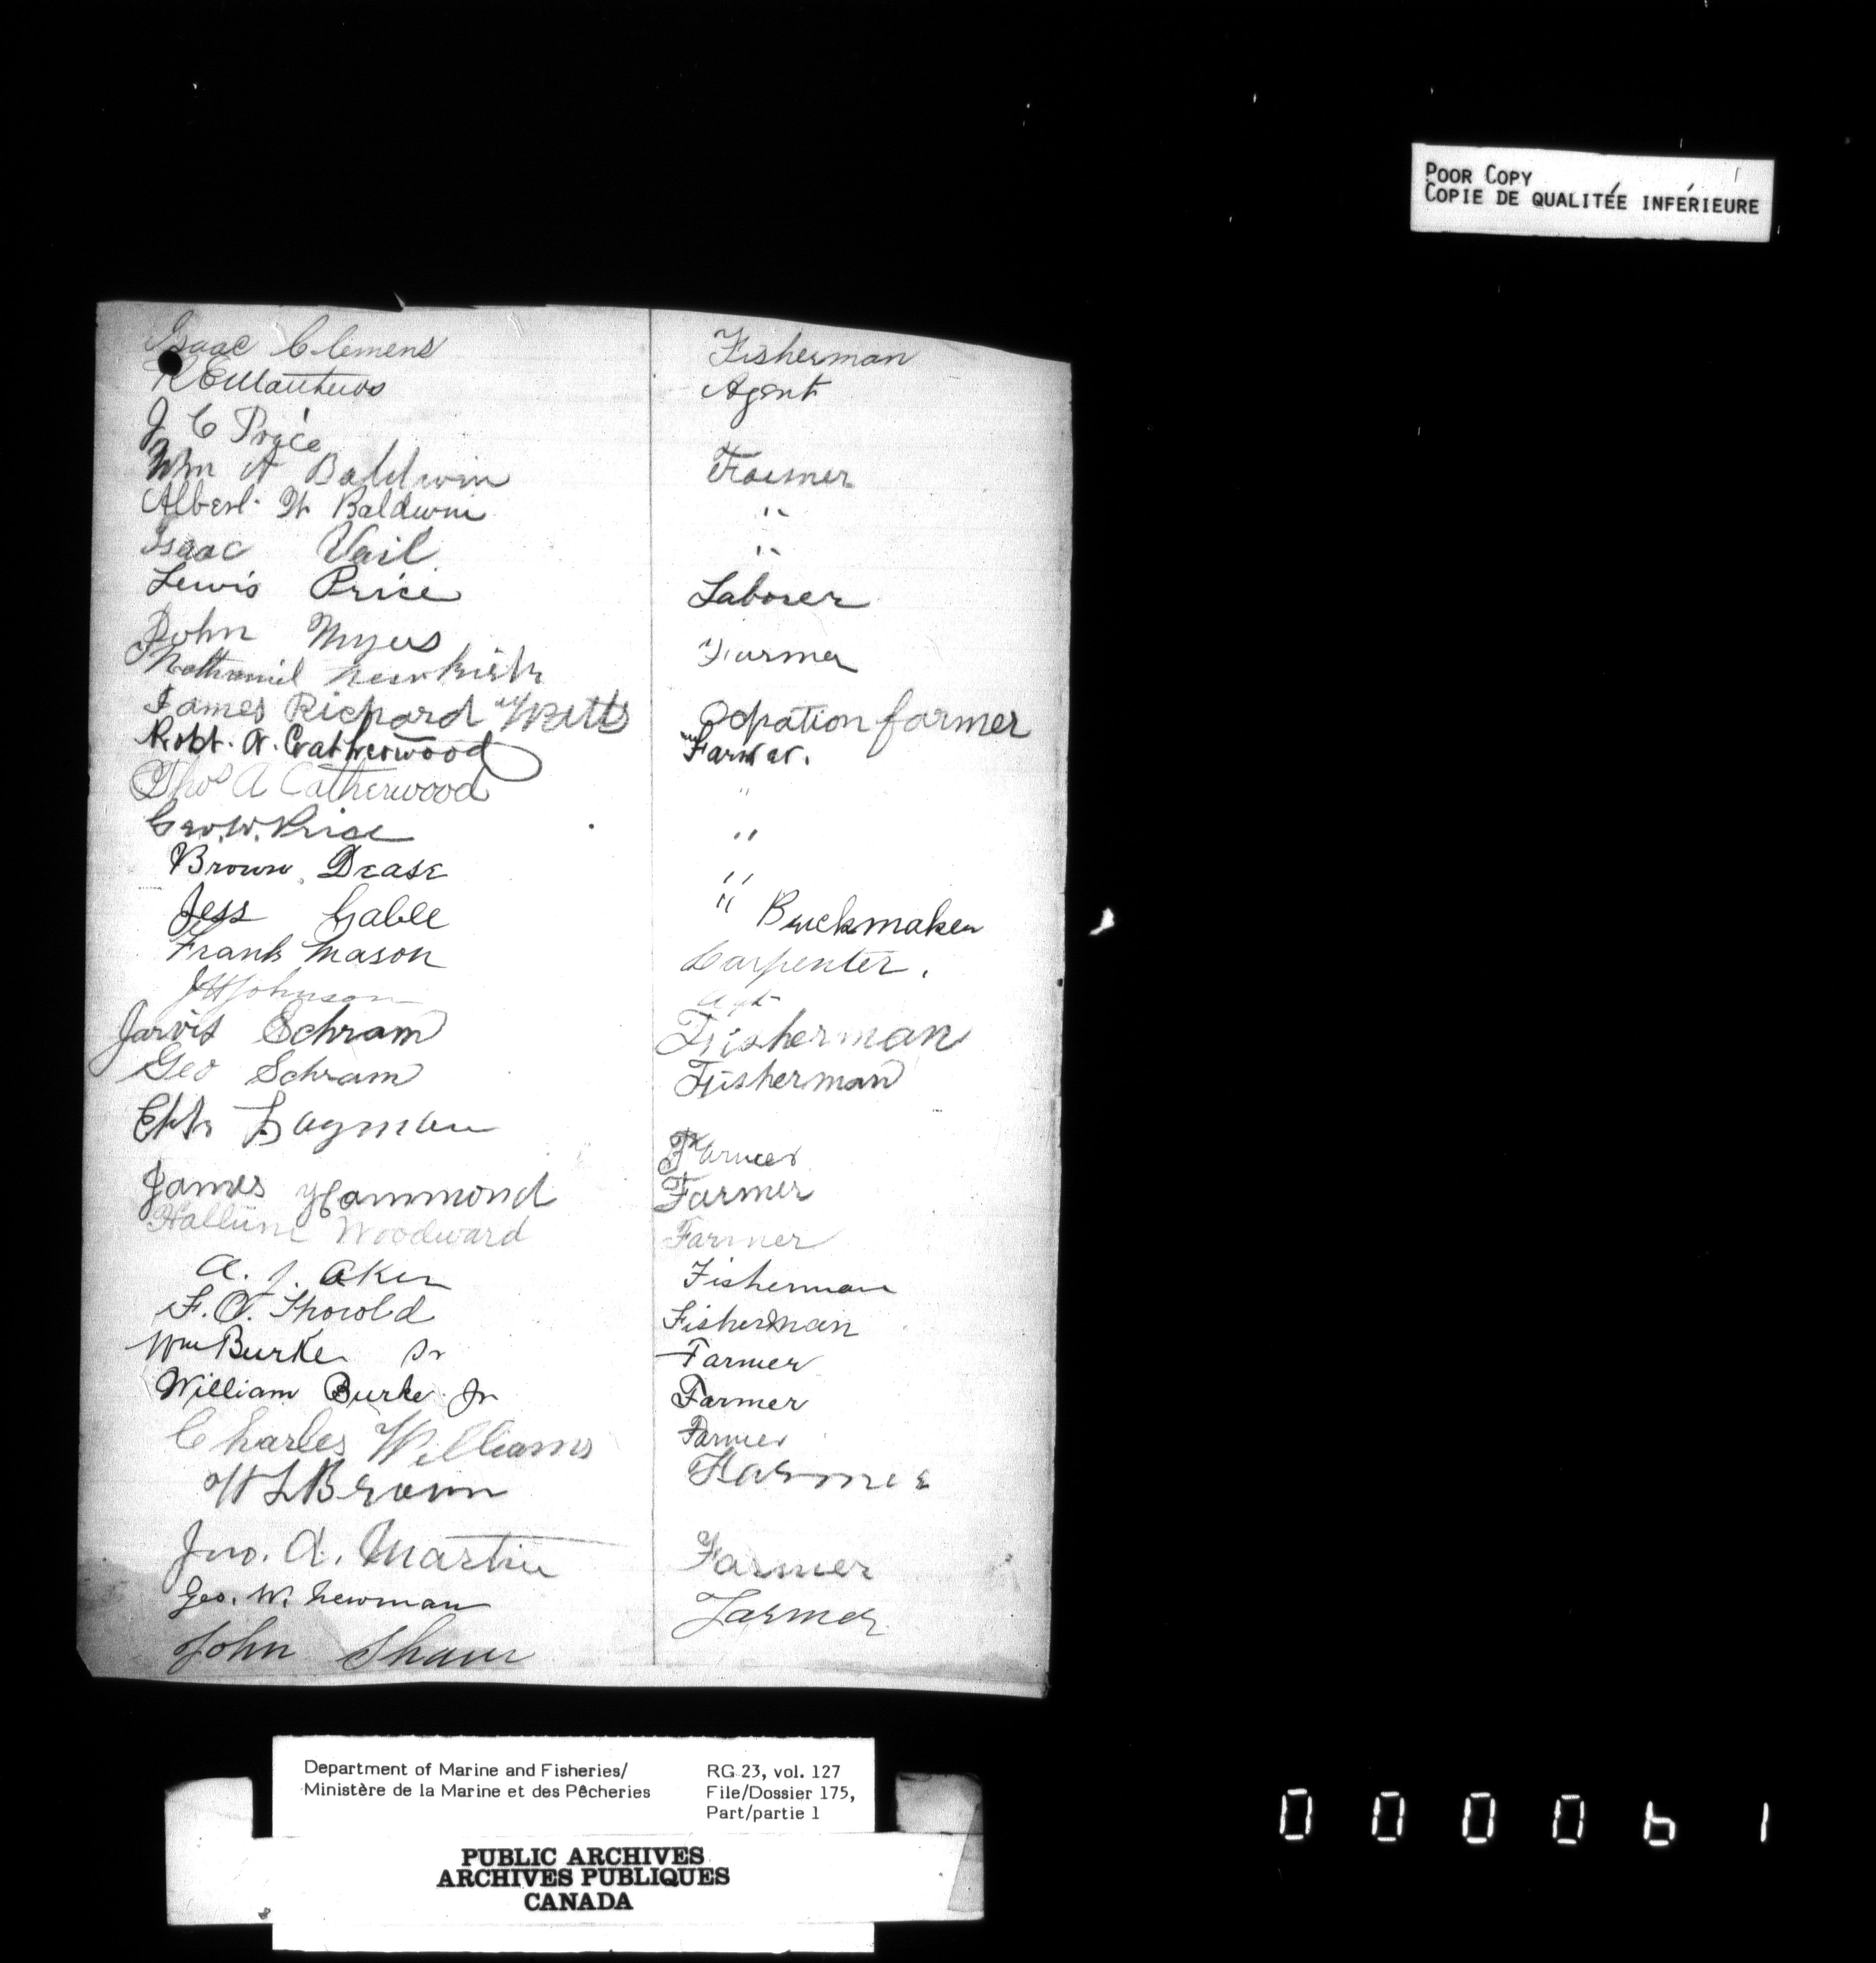 POOR COPY
COPIE DE QUALITÉE INFÉRIEURE
Isaac Clemens Fisherman
R E Matthews Agent
J C Price
Wm A Baldwin Farmer
Albert W Baldwin "
Isaac Vail "
Lewis Price Laborer
John Myers Farmer
Nathaniel Newkirk
James Richard Watts Ocpation farmer
Robt. A. Catherwood Farmer.
Thos A Catherwood "
Geo. W. Price "
Brown Dease "
Jess Gable " Brickmaker
Frank Mason Carpenter.
J H Johnson Agt
Jarvis Schram Fisherman
Geo Schram Fisherman
Layman Farmer
James Hammond Farmer
Woodward Farmer
A. J. Aker Fisherman
F. A. Thorold Fisherman
Wm Burke Sr Farmer
William Burke Jr Farmer
Charles Williams Farmer
W L Brown Farmer
Jno. A. Martin Farmer
Geo. W. Newman Farmer
John Shaw
Department of Marine and Fisheries/ RG 23, vol. 127
Ministère de la Marine et des Pêcheries File/Dossier 175,
Part/partie 1
PUBLIC ARCHIVES
ARCHIVES PUBLIQUES
CANADA
000061